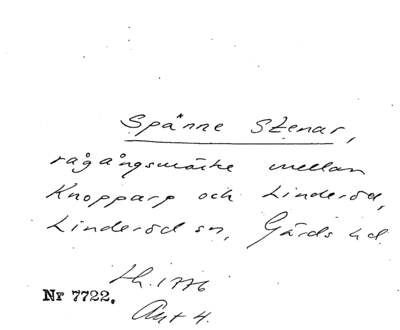 Spänne Stenar,
rågångsmärke mellan
Knopparp och Linderöd,
Linderöd sn, Gärds hd.
Lh. 1776
Nr 7722.
Akt 4.